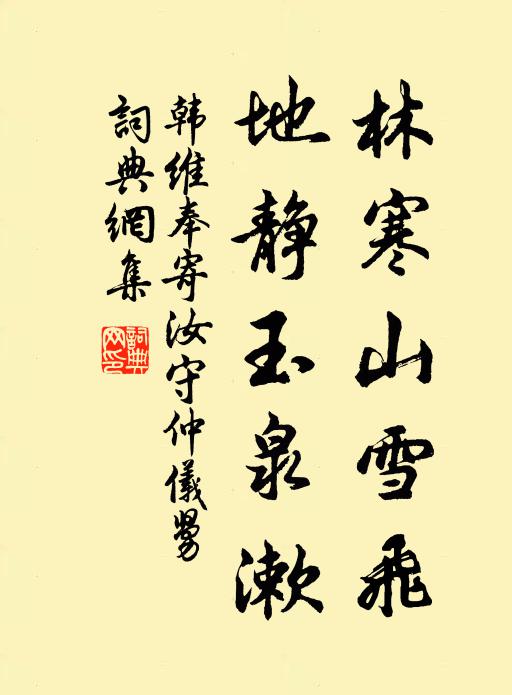 林寒山雪飛
地靜玉泉漱
韩維奉寄汝守仲儀舅
詞典網集
詞典网印